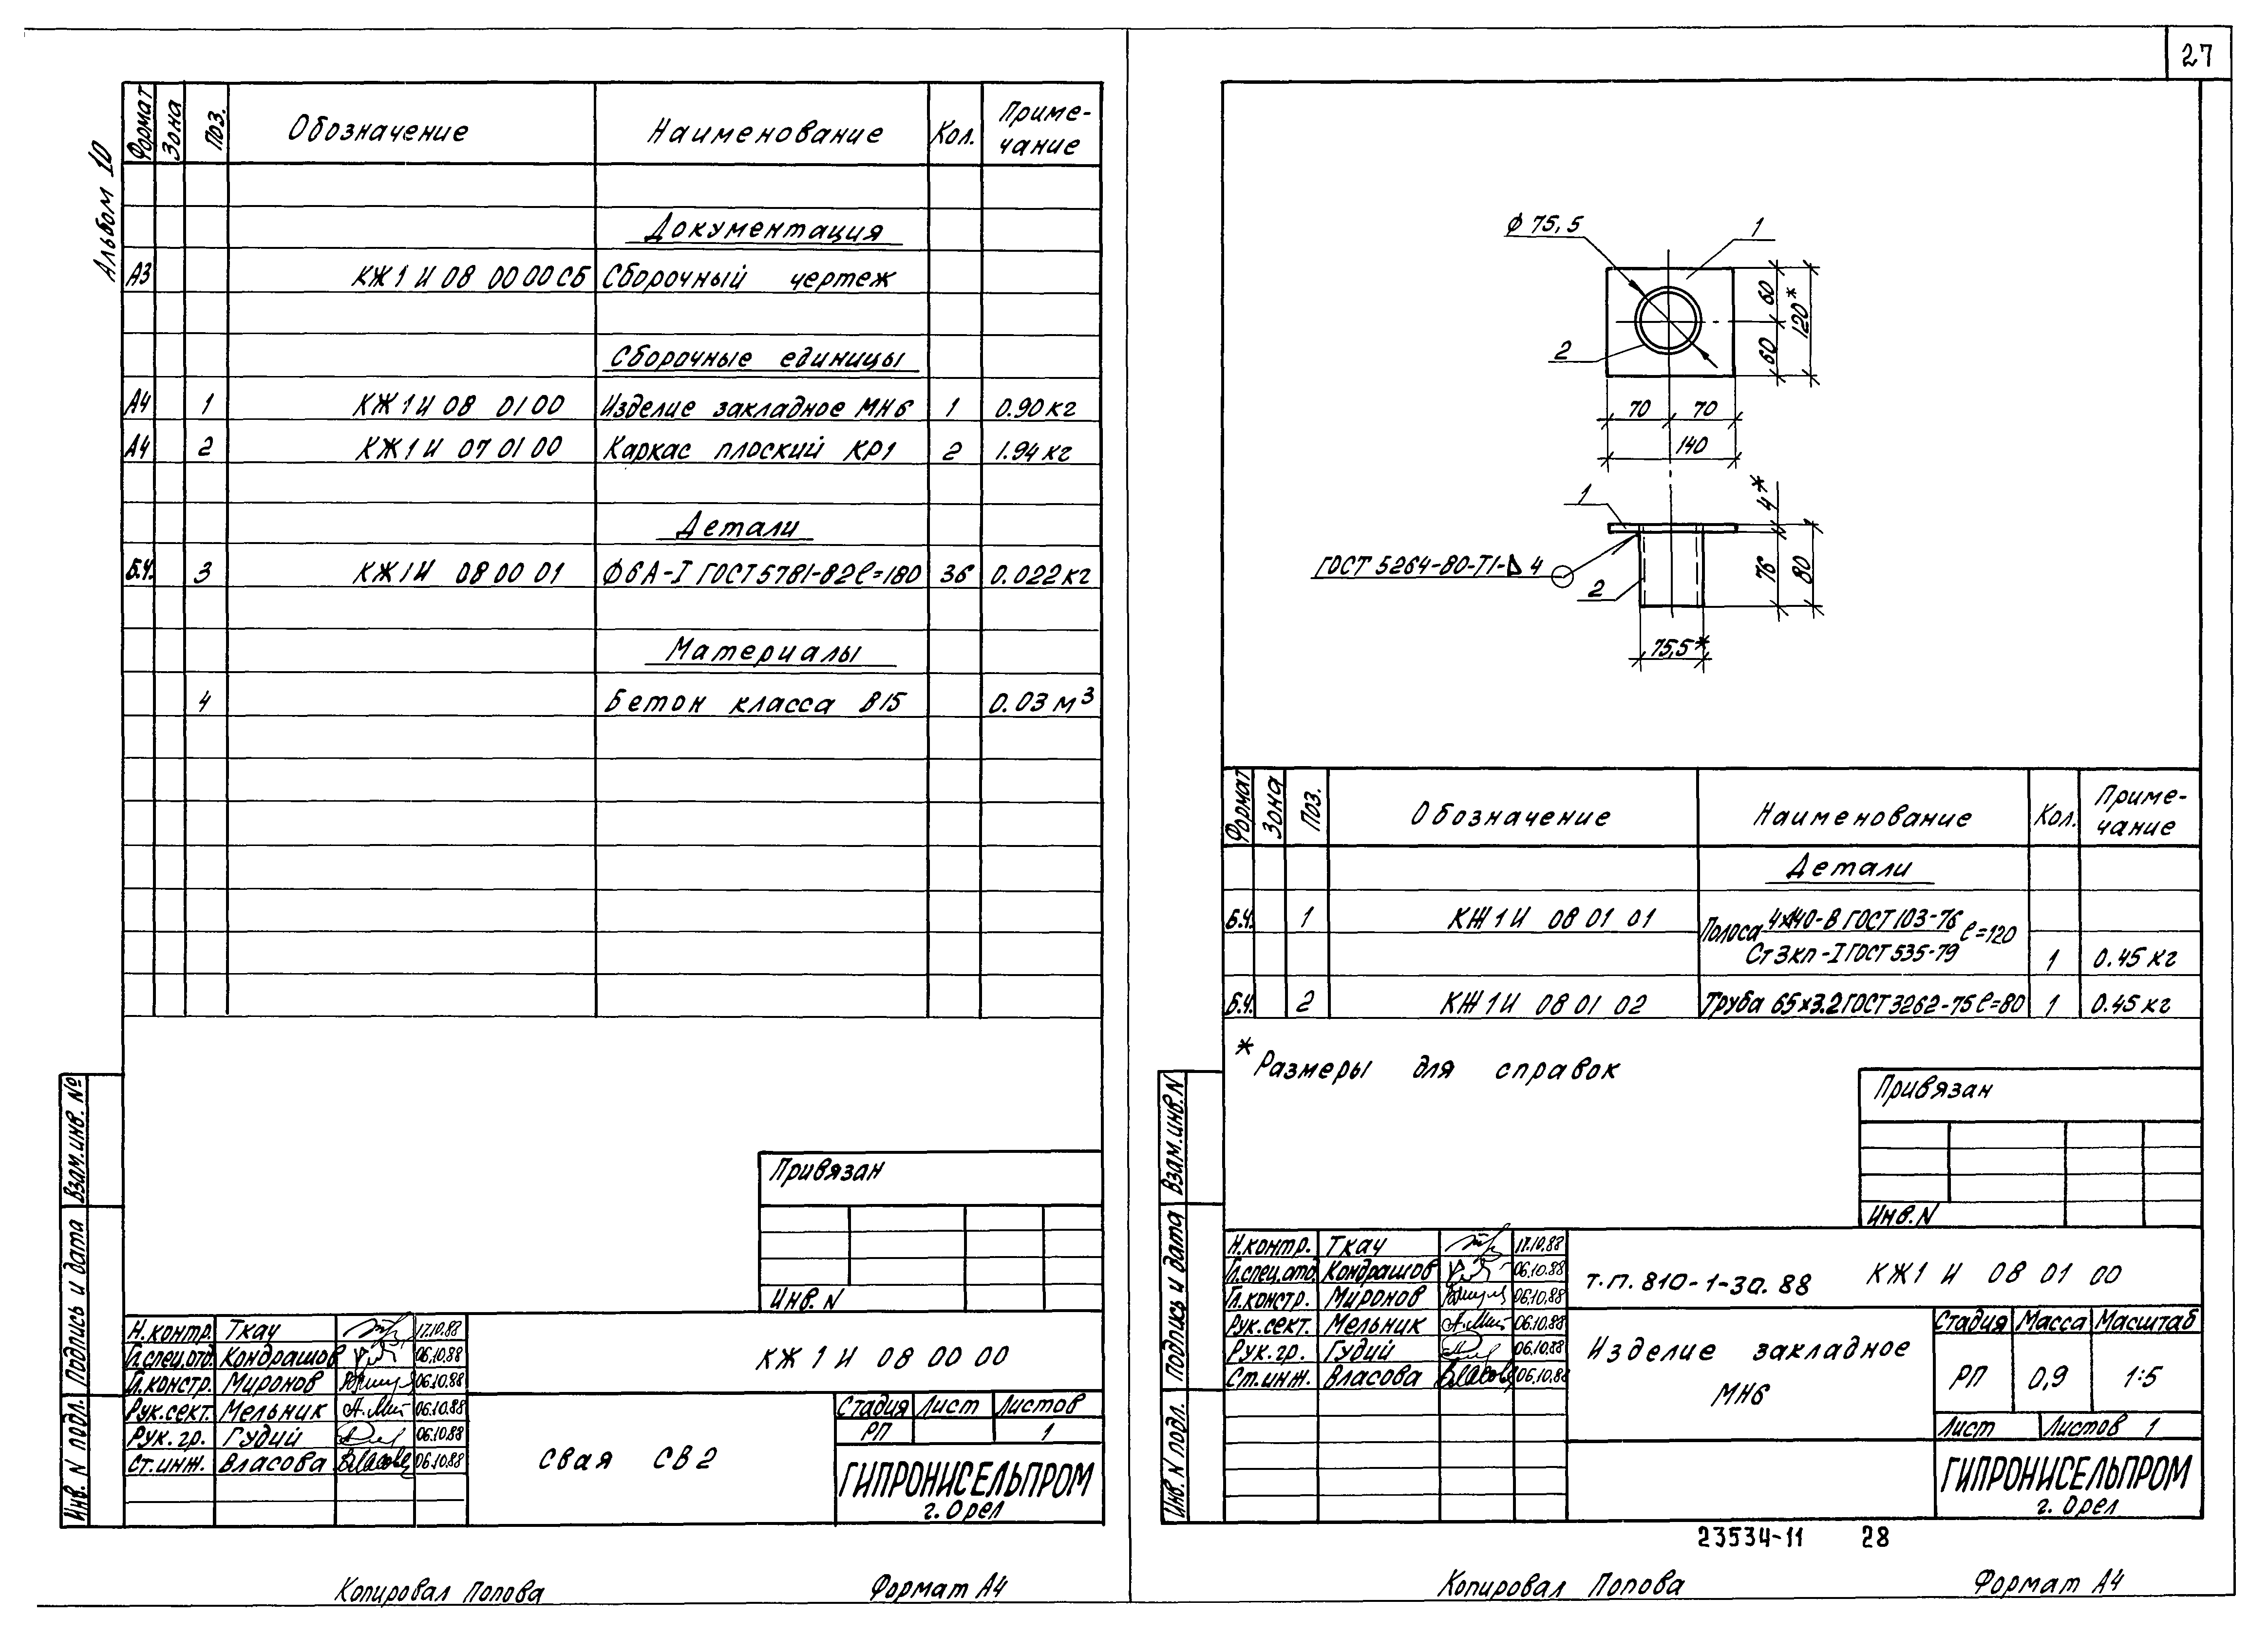 27
Альбом 10
Формат Зона Поз. Обозначение Наименование Кол. Приме-
чание
Документация
А3 КЖ1 И 08 00 00 СБ Сборочный чертеж
Сборочные единицы
А4 1 КЖ1И 08 01 00 Изделие закладное МН6 1 0.90 кг
А4 2 КЖ1И 07 01 00 Каркас плоский КР1 2 1.94 кг
Детали
Б.Ч. 3 КЖ1И 08 00 01 ф6А-I ГОСТ 5781-82 ℓ=180 36 0.022 кг
Материалы
4 Бетон класса В15 0.03 м³
Взам.инв. №
Подпись и дата
Инв. N подл.
Привязан
Инв. N
Н.контр. Ткач 17.10.88
Гл.спец.отд. Кондрашов 06.10.88
Гл.констр. Миронов 06.10.88
Рук.сект. Мельник 06.10.88
Рук. гр. Гудий 06.10.88
Ст.инж. Власова 06.10.88
КЖ 1 И 08 00 00
свая СВ2
Стадия Лист Листов
РП 1
ГИПРОНИСЕЛЬПРОМ
г. Орел
Копировал Попова Формат А4
ф 75,5
1
2
60
60
120*
70 70
140
1
4*
ГОСТ 5264-80-Т1-⊿ 4
2
76
80
75,5*
Формат Зона Поз. Обозначение Наименование Кол. Приме-
чание
Детали
Б.Ч. 1 КЖ1И 08 01 01 Полоса 4х140-В ГОСТ 103-76 ℓ=120
Ст3кп-I ГОСТ 535-79 1 0.45 кг
Б.Ч. 2 КЖ1И 08 01 02 Труба 65х3.2 ГОСТ 3262-75 ℓ=80 1 0.45 кг
* Размеры для справок
Взам.инв.N
Подпись и дата
Инв. N подл.
Привязан
Инв. N
Н.контр. Ткач 17.10.88
Гл.спец.отд. Кондрашов 06.10.88
Гл.констр. Миронов 06.10.88
Рук.сект. Мельник 06.10.88
Рук. гр. Гудий 06.10.88
Ст.инж. Власова 06.10.88
т.п. 810-1-30.88 КЖ1 И 08 01 00
Изделие закладное
МН6
Стадия Масса Масштаб
РП 0,9 1:5
Лист Листов 1
ГИПРОНИСЕЛЬПРОМ
г. Орел
23534-11 28
Копировал Попова Формат А4